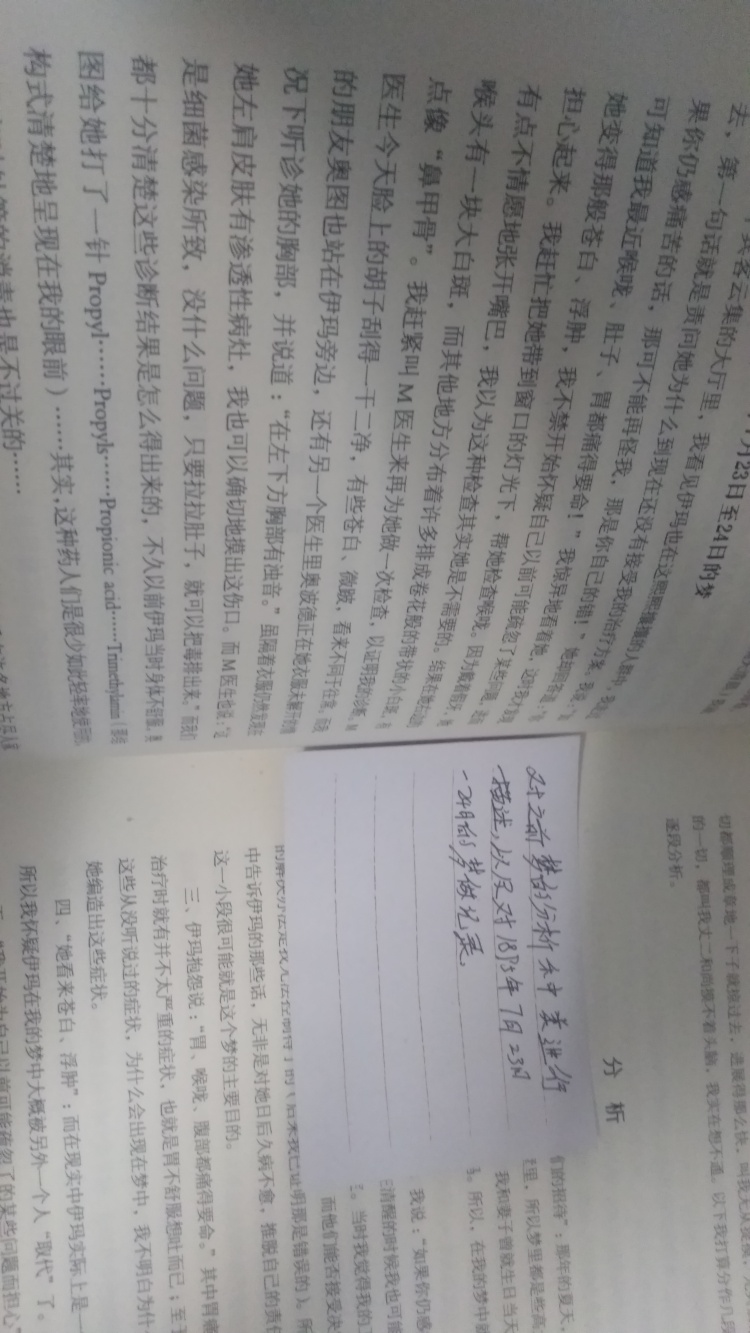 7月23日至24日的梦
去，第一句话就是责问她为什么到现在还没有接受我的治疗方案。我说：
果你仍感痛苦的话，那可不能再怪我，那是你自己的错！”她却回答道：
可知道我最近喉咙、肚子、胃都痛得要命！”我惊异地看着她，
她变得那般苍白、浮肿，我不禁开始怀疑自己以前可能疏忽了某些问题，
担心起来。我赶忙把她带到窗口的灯光下，帮她检查喉咙。因为戴着假牙，
有点不情愿地张开嘴巴，我以为这种检查其实她是不需要的。结果在她
喉头有一块大白斑，而其他地方分布着许多排成卷花般的带状的小白斑，
点像“鼻甲骨”。我赶紧叫M医生来再为她做一次检查，以证明我的诊断。
医生今天脸上的胡子刮得一干二净，有些苍白、微跛，看来不同于往常。
的朋友奥图也站在伊玛旁边，还有另一个医生里奥波德正在她衣服未解开的情
况下听诊她的胸部，并说道：“在左下方胸部有浊音。”虽隔着衣服仍然发现在
她左肩皮肤有渗透性病灶，我也可以确切地摸出这伤口。而M医生也说：“这
是细菌感染所致，没什么问题，只要拉拉肚子，就可以把毒排出来。”而我们
都十分清楚这些诊断结果是怎么得出来的，不久以前伊玛当时身体不舒服，奥
图给她打了一针 Propyl……Propyls……Propionic acid……Trimethylamin（
构式清楚地呈现在我的眼前）……其实，这种药人们是很少如此轻率地使用的，
切都顺理成章地一下子就掠过去，进展得那么快，
的一切，都叫我丈二和尚摸不着头脑，我实在想不通。以下我打算分作几段
逐段分析。
分 析
对之前梦的分析和种类进行
描述，以及对1895年7月23日
-24日的梦做记录。
们的招待”：那年的夏天，
里，所以梦里都是些高
我和妻子曾就生日当天
所以，在我的梦中
我说：“如果你仍感
日清醒的时候我也可能
当时我觉得我的工
而他们能否接受决
中告诉伊玛的那些话，无非是对她日后久病不愈，推脱自己的责任
这一小段很可能就是这个梦的主要目的。
三、伊玛抱怨说：“胃、喉咙、腹部都痛得要命。”其中胃痛
治疗时就有并不太严重的症状，也就是胃不舒服想吐而已；至于
这些从没听说过的症状，为什么会出现在梦中，我不明白为什
她编造出这些症状。
四、“她看来苍白、浮肿”；而在现实中伊玛实际上是一
所以我怀疑伊玛在我的梦中大概被另外一个人“取代”了。